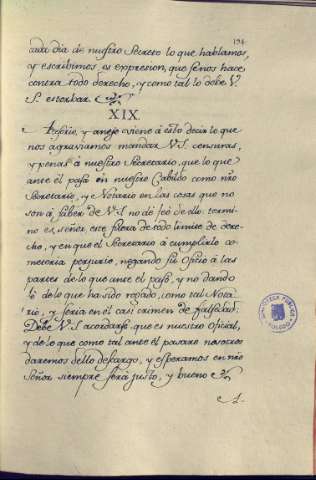 194
cada dia de nuestro Secreto lo que hablamos,
y escribimos, es expresion, que se nos hace
contra todo derecho, y como tal lo debe V.
S. estorbar.
XIX.
Accesorio, y anejo viene á esto decir lo que
nos agraviamos mandar V.S. censuras,
y penas á nuestro Secretario, que lo que
ante el pasó en nuestro Cabildo como nro
Secretario, y Notario en las cosas que no
son á saber de V.S. no dé feé de ello. termi-
no es, señor, este fuera de todo limite de dere-
cho, y en que el Secretario á cumplirlo co-
meteria perjurio, negando su oficio á las
partes de lo que ante el pasó, y no dando
lo de lo que ha sido rogado, como tal Nota-
rio, y seria en el casi crimen de falsedad.
Debe V.S. acordarse que es nuestro oficial,
y de lo que como tal ante el pasare nosotros
daremos dello descargo, y esperamos en nro
Señor siempre será justo, y bueno
BIBLIOTECA PUBLICA
TOLEDO